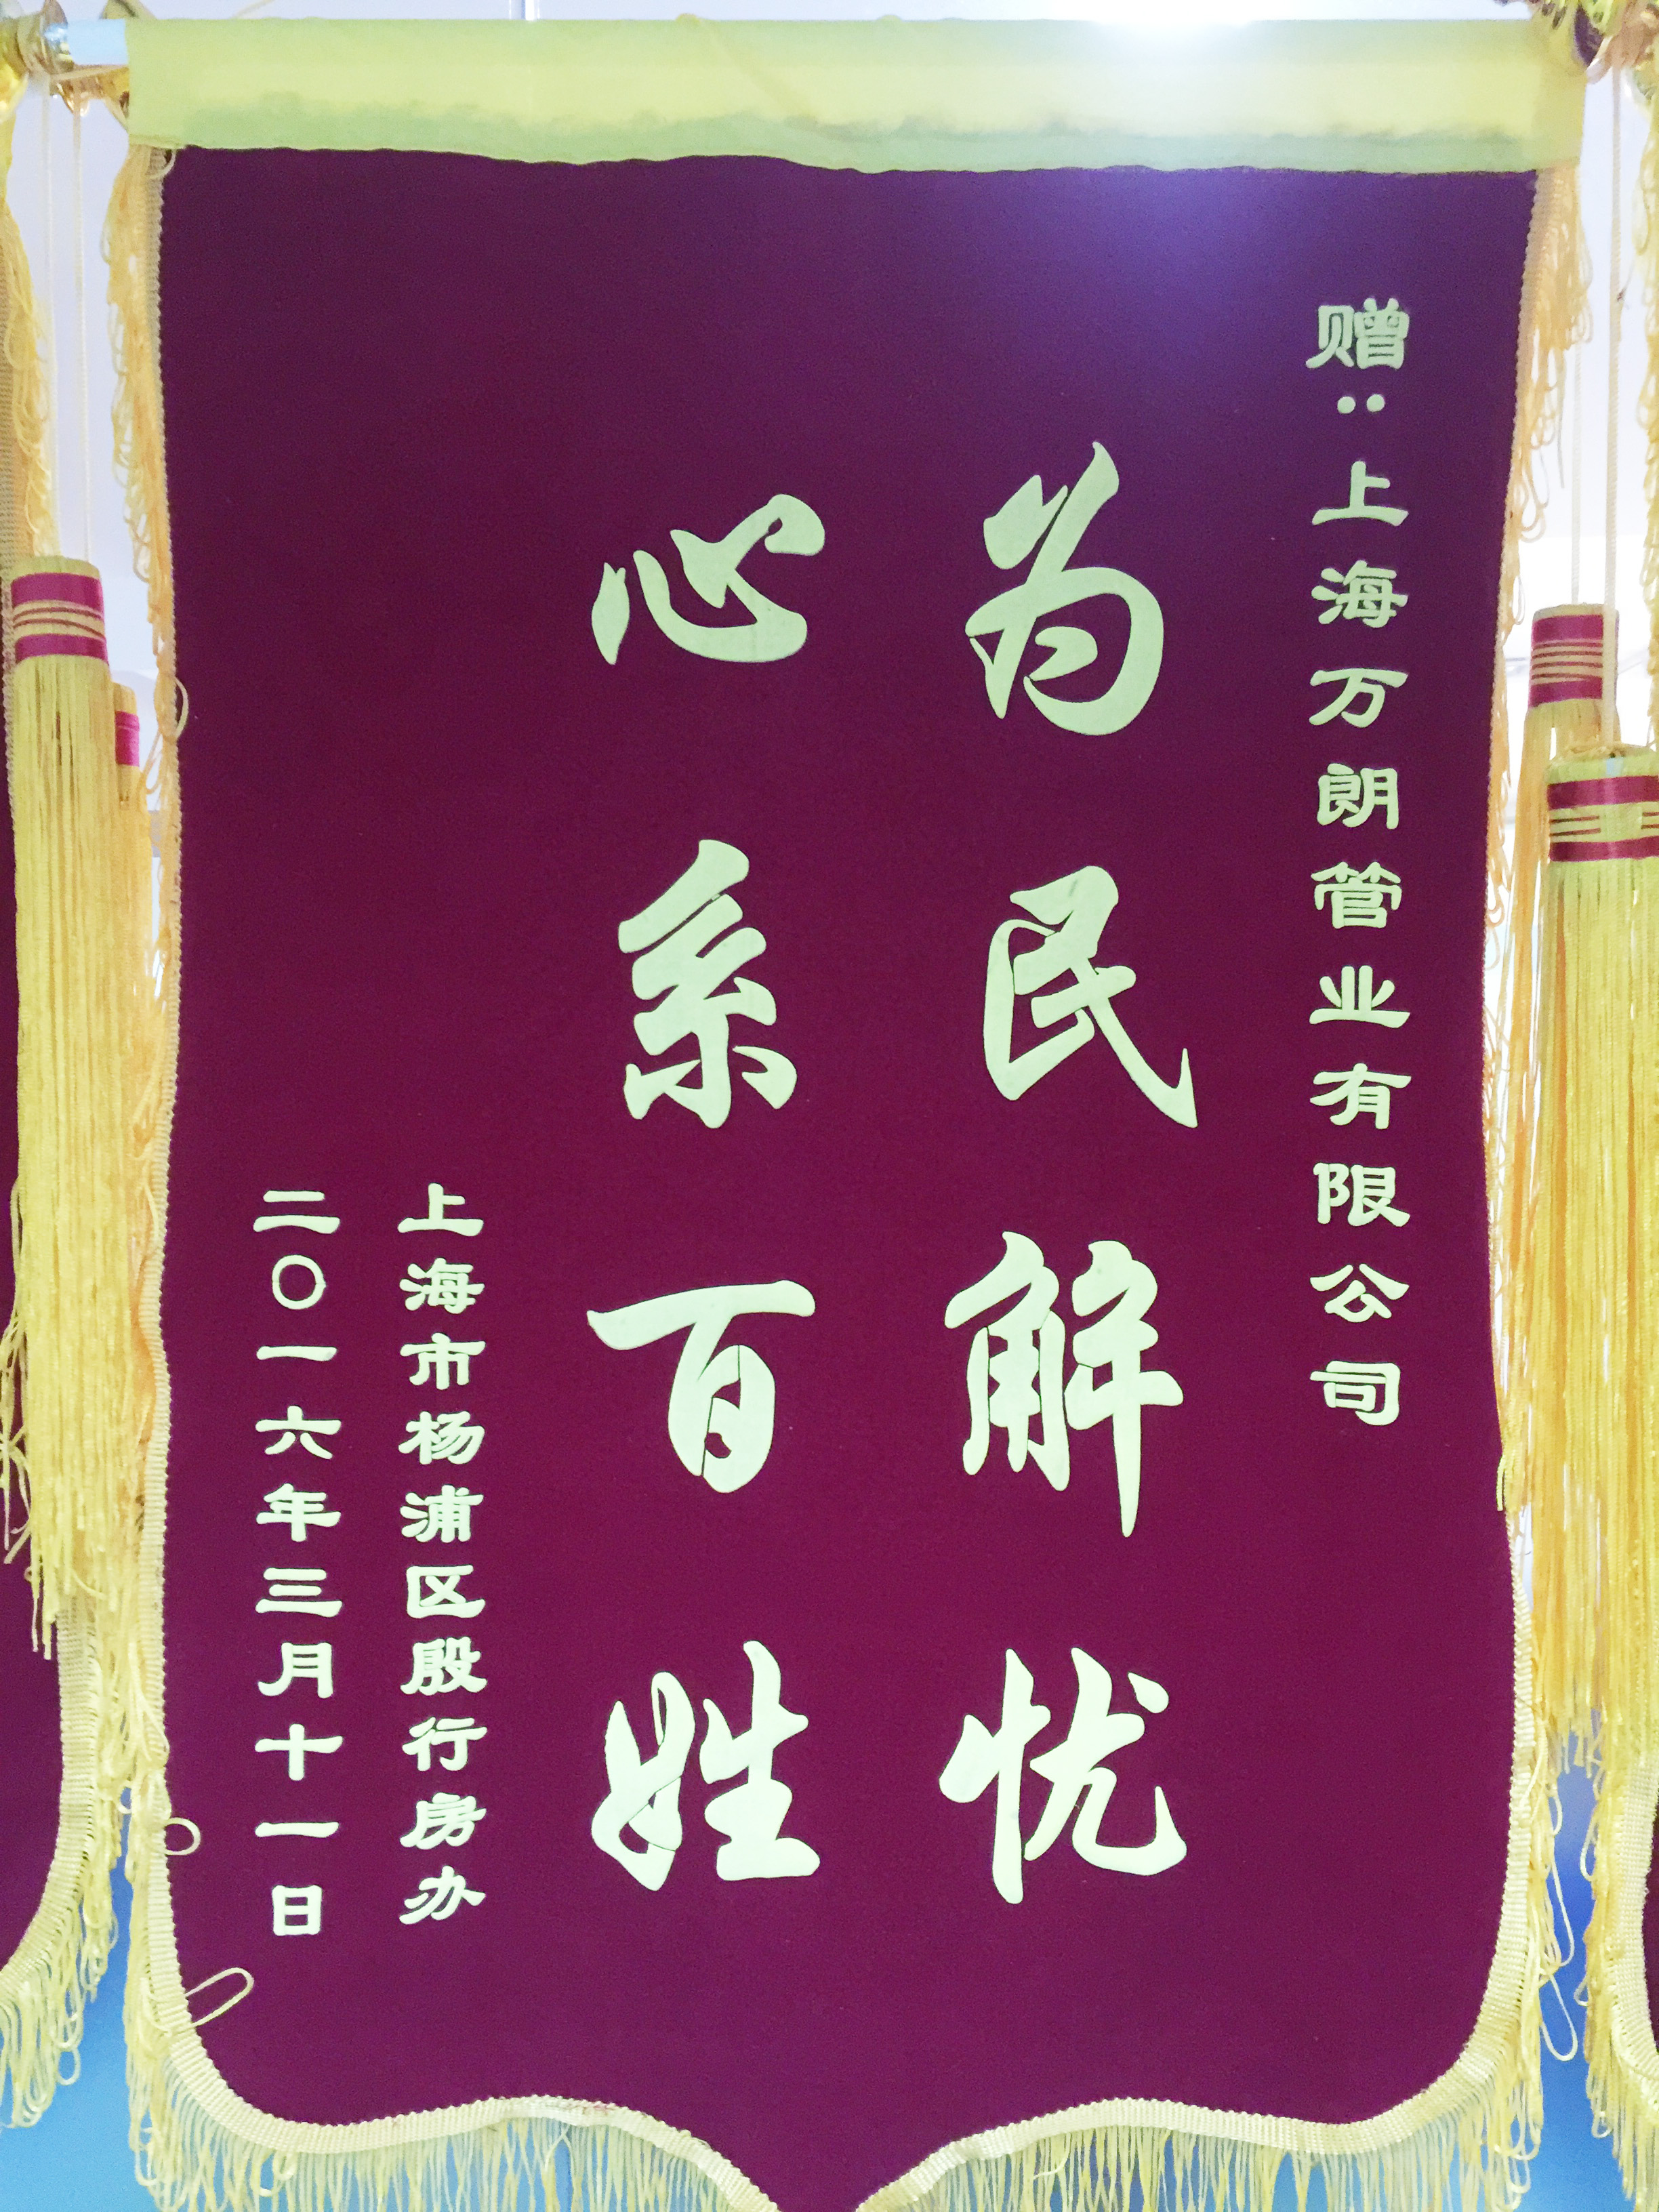 赠：上海万朗管业有限公司
为民解忧
心系百姓
上海市杨浦区殷行房办
二〇一六年三月十一日